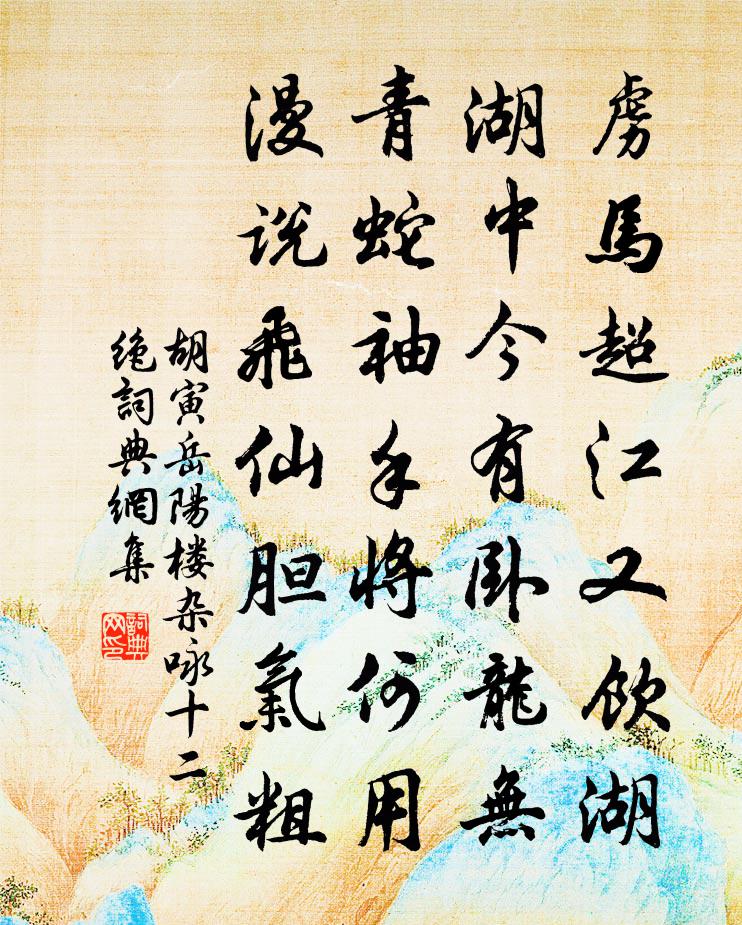 虏馬超江又飲湖
湖中今有卧龍無
青蛇袖手將何用
漫说飛仙胆氣粗
胡寅岳陽楼杂咏十二
绝詞典網集
詞典
网印